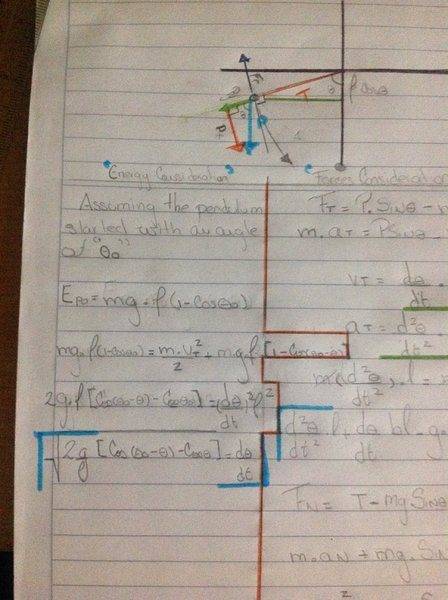 ℓ cosθ
T
"Energy Consideration"
Forces Consideration
Assuming the pendulum
started with an angle
of "θ₀"
E_P0 = mg.ℓ.(1-cosθ₀)
mg.ℓ(1-cosθ₀) = m.V_T²/2 + m.g.ℓ.[1-Cos(θ₀-θ)]
2g.ℓ[Cos(θ₀-θ)-Cosθ₀] = (dθ/dt)²ℓ²
√2g[Cos(θ₀-θ)-Cosθ₀] = dθ/dt
F_T = P.Sinθ - 
m.a_T = PSinθ - 
V_T = dθ/dt .
a_T = d²θ/dt² .
m.d²θ/dt² . ℓ =
d²θ/dt² . ℓ + dθ/dt bℓ - g.
F_N = T - mg Sinθ
m.a_N + mg.Sin